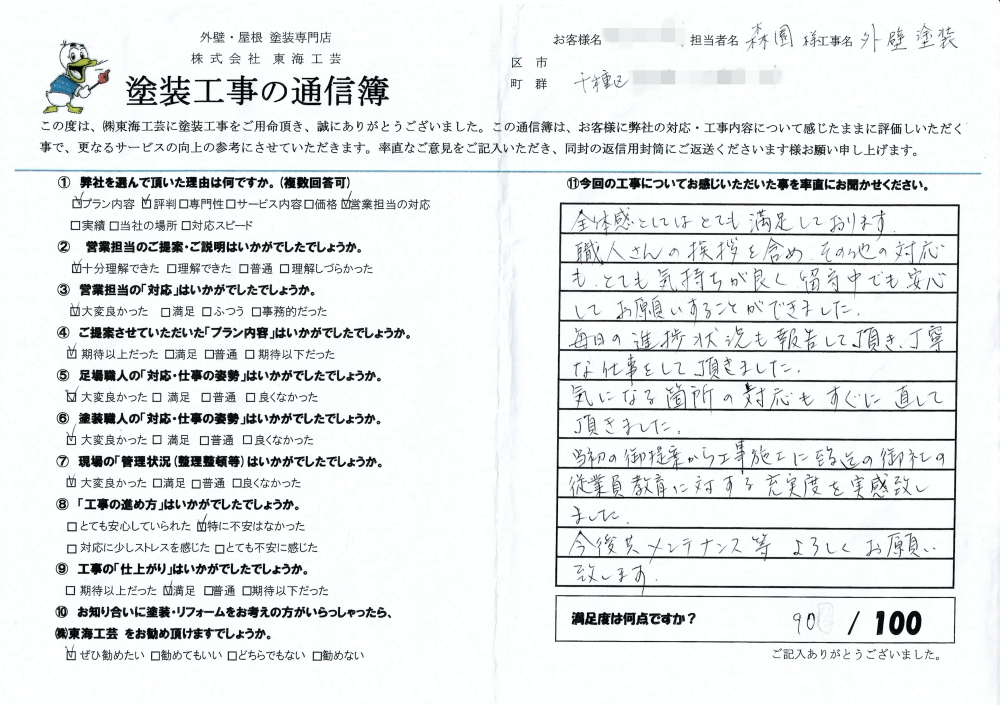 外壁・屋根 塗装専門店
株式会社 東海工芸
塗装工事の通信簿
お客様名 担当者名 森園 様工事名 外壁塗装
区 市
町 群 千種区
この度は、㈱東海工芸に塗装工事をご用命頂き、誠にありがとうございました。この通信簿は、お客様に弊社の対応・工事内容について感じたままに評価しいただく
事で、更なるサービスの向上の参考にさせていただきます。率直なご意見をご記入いただき、同封の返信用封筒にご返送くださいます様お願い申し上げます。
① 弊社を選んで頂いた理由は何ですか。(複数回答可)
☑プラン内容 ☑評判□専門性□サービス内容□価格☑営業担当の対応
□実績□当社の場所□対応スピード
② 営業担当のご提案・ご説明はいかがでしたでしょうか。
☑十分理解できた □理解できた □普通 □理解しづらかった
③ 営業担当の「対応」はいかがでしたでしょうか。
☑大変良かった □満足 □ふつう □事務的だった
④ ご提案させていただいた「プラン内容」はいかがでしたでしょうか。
☑ 期待以上だった □満足 □普通 □ 期待以下だった
⑤ 足場職人の「対応・仕事の姿勢」はいかがでしたでしょうか。
☑ 大変良かった □ 満足 □普通 □良くなかった
⑥ 塗装職人の「対応・仕事の姿勢」はいかがでしたでしょうか。
☑ 大変良かった □ 満足 □普通 □良くなかった
⑦ 現場の「管理状況(整理整頓等)はいかがでしたでしょうか。
☑ 大変良かった □満足 □普通 □良くなかった
⑧ 「工事の進め方」はいかがでしたでしょうか。
□とても安心していられた ☑特に不安はなかった
□ 対応に少しストレスを感じた □とても不安に感じた
⑨ 工事の「仕上がり」はいかがでしたでしょうか。
□ 期待以上だった ☑満足 □普通 □期待以下だった
⑩ お知り合いに塗装・リフォームをお考えの方がいらっしゃったら、
㈱東海工芸 をお勧め頂けますでしょうか。
☑ ぜひ勧めたい □勧めてもいい □どちらでもない □勧めない
⑪今回の工事についてお感じいただいた事を率直にお聞かせください。
全体感としてはとても満足しております。
職人さんの挨拶を含め、その他の対応
も、とても気持ちが良く留守中でも安心
してお願いすることができました。
毎日の進捗状況も報告して頂き、丁寧
な仕事をして頂きました。
気になる箇所の対応もすぐに直して
頂きました。
当初の御提案から工事施工に至迄の御社の
従業員教育に対する充実度を実感致し
ました。
今後共メンテナンス等 よろしくお願い
致します。
満足度は何点ですか？ 90 / 100
ご記入ありがとうございました。